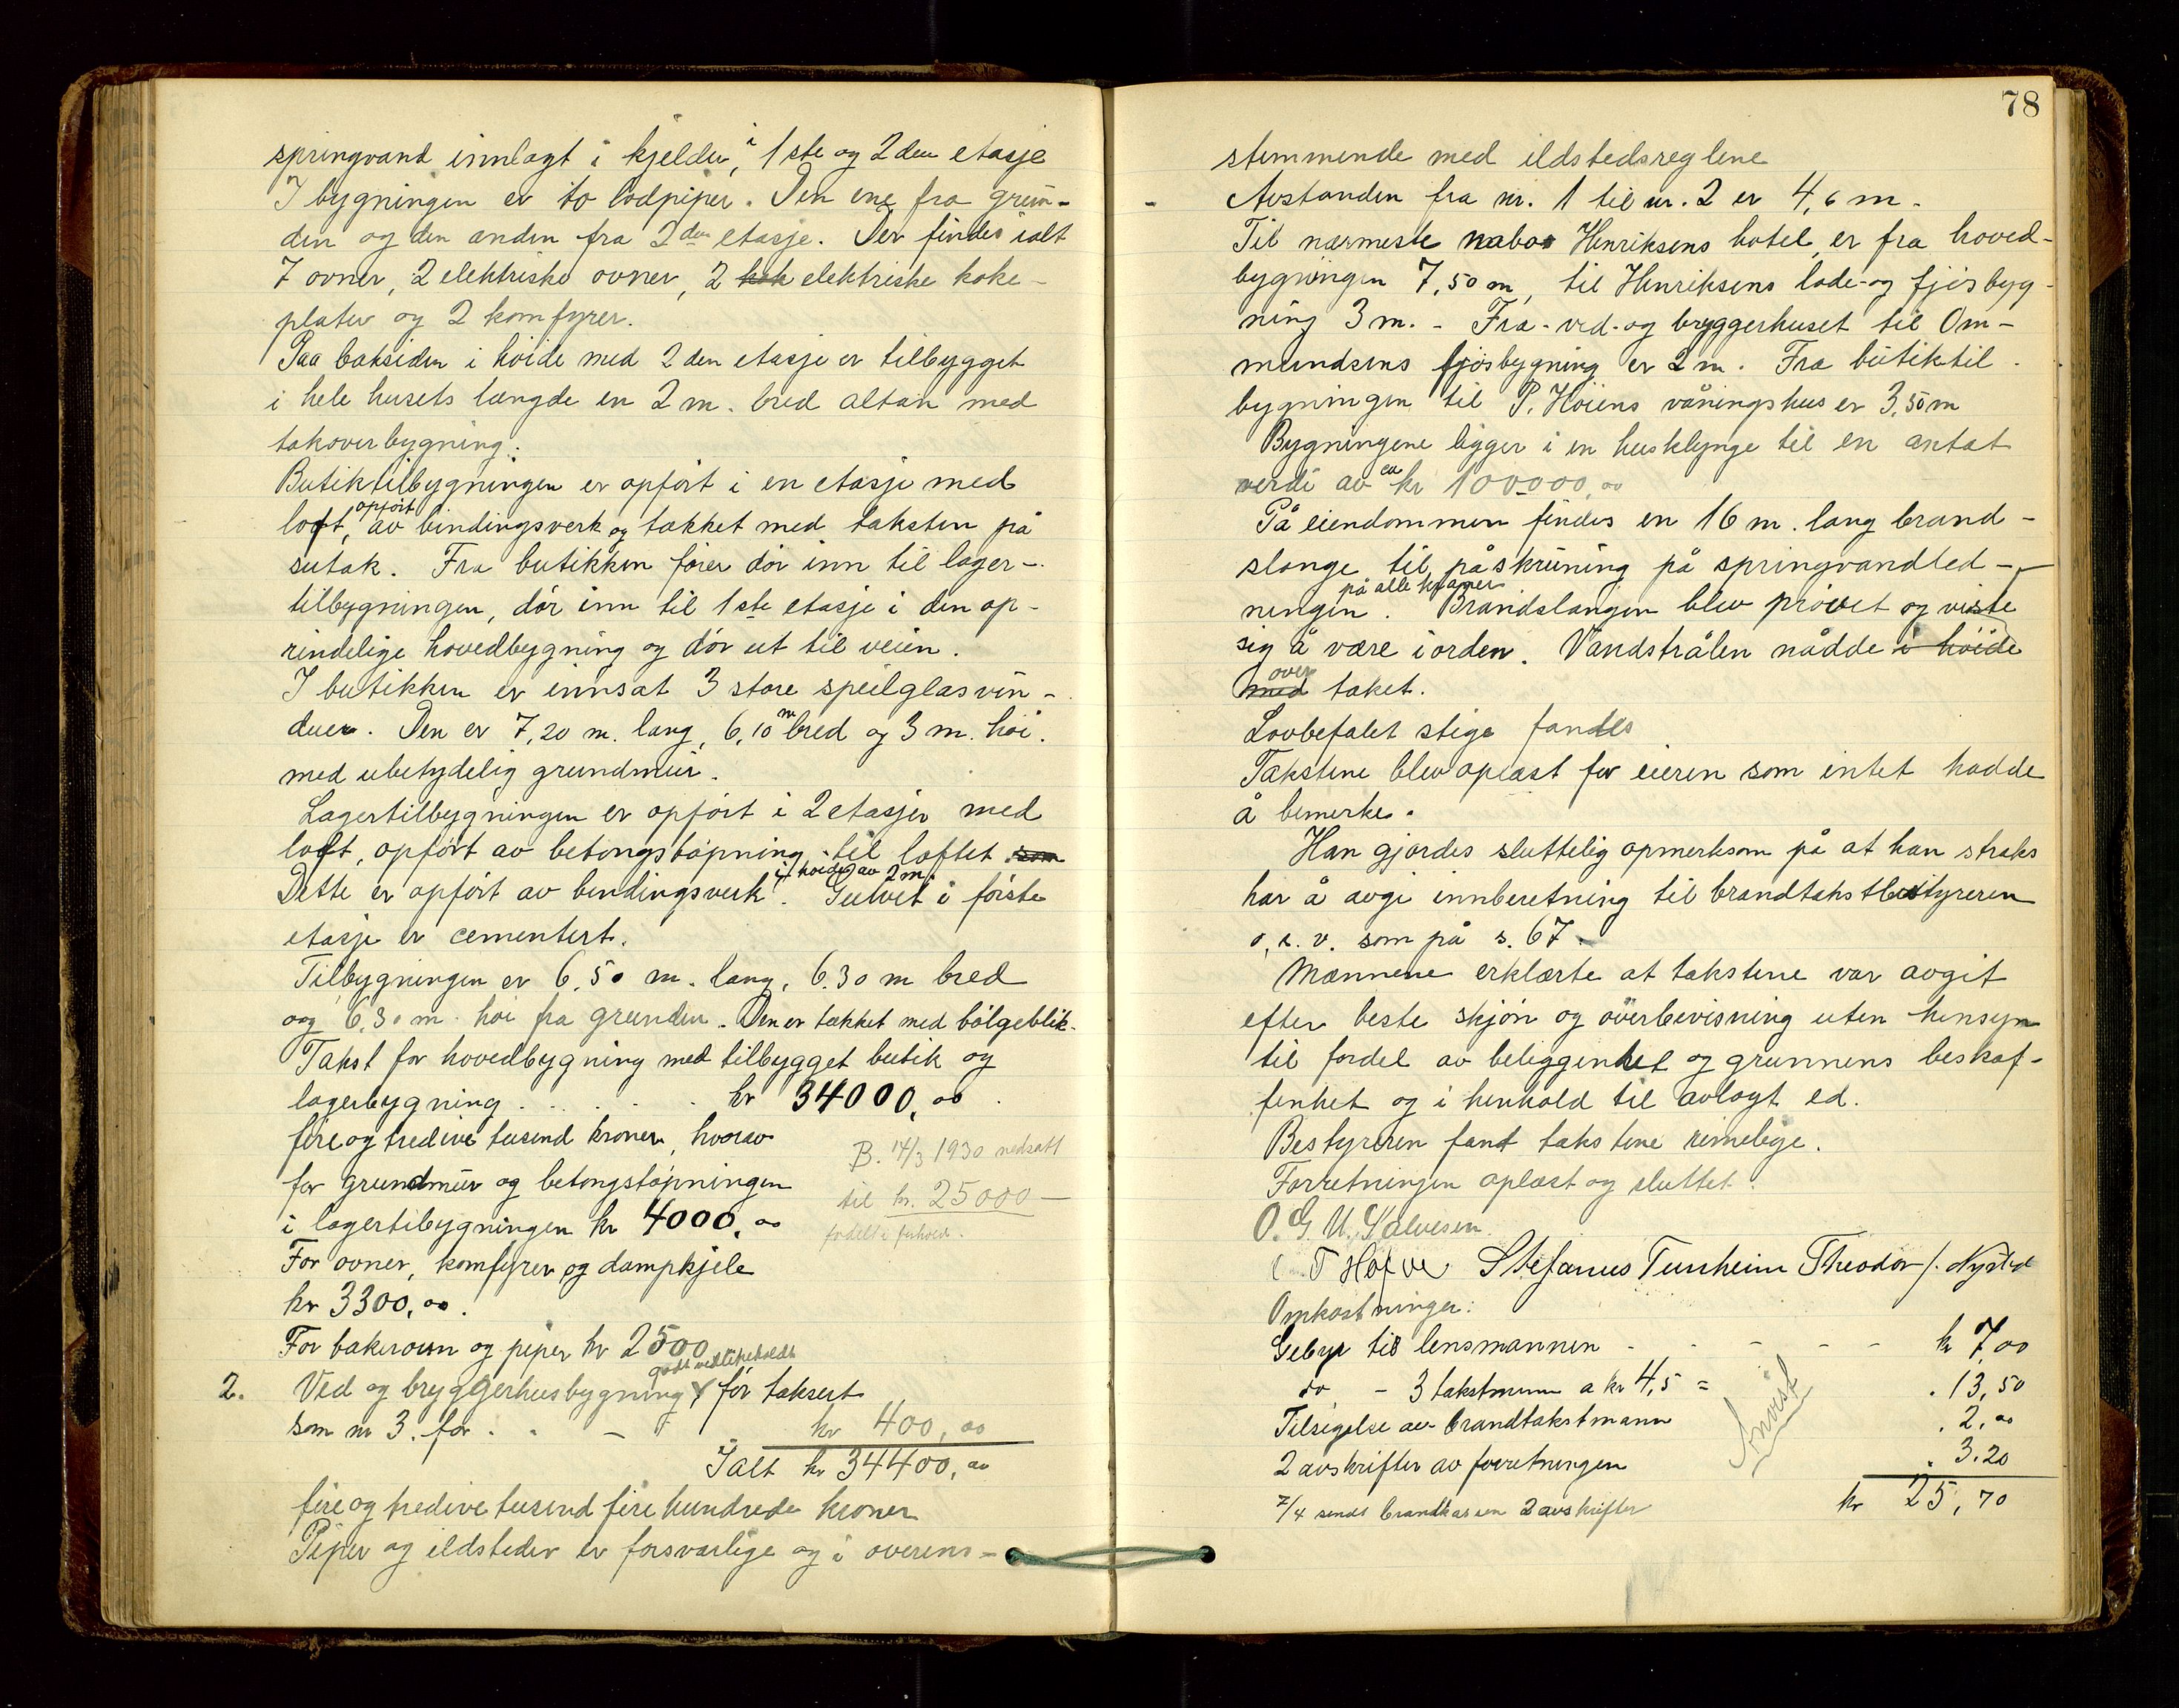 springvand innlagt i kjelder, i 1ste og 2den etasje
I bygningen er to lodpiper. Den ene fra grun-
den og den anden fra 2den etasje. Der findes ialt
7 ovner, 2 elektriske ovner, 2 kok elektriske koke-
plater og 2 komfyrer.
Paa baksiden i höide med 2den etasje er tilbygget
i hele husets længde en 2 m. bred altan med
takoverbygning.
Butiktilbygningen er opfört i en etasje med
loft, opfört av bindingsverk og tækket med taksten på
sutak. Fra butikken förer dör inn til lager-
tilbygningen, dör inn til 1ste etasje i den op-
rindelige hovedbygning og dör ut til veien.
I butikken er innsat 3 store speilglasvin-
duer. Den er 7,20 m. lang, 6,10 m bred og 3 m. höi.
med ubetydelig grundmur.
Lagertilbygningen er opfört i 2 etasjer med
loft, opfört av betongstöpning til loftet som
Dette er opfört av bindingsverk i höide av 2 m. Gulvet i förste
etasje er cementert.
Tilbygningen er 6.50 m. lang, 6.30 m bred
og 6,30 m. höi fra grunden. Den er tækket med bölgeblik.
Takst for hovedbygning med tilbygget butik og
lagerbygning . . . . . kr 34000,00
fire og tredive tusend kroner, hvorav
for grundmur og betongstöpningen
i lagertibygningen kr 4000,00
B. 14/3 1930 nedsatt
til kr. 25000 —
fordelt i forhold.
For ovner, komfyrer og dampkjele
kr 3300,00.
For bakerovn og piper kr 2500
2. Ved og bryggerhusbygning godt vedlikeholdt för taksert
som nr 3. for . . — kr 400,00
Ialt kr 34400,00
fire og tredive tusend fire hundrede kroner
Piper og ildsteder er forsvarlige og i overens-
78
stemmende med ildstedsreglene
Avstanden fra nr. 1 til nr. 2 er 4,6 m.
Til nærmeste nabo Henriksens hotel, er fra hoved-
bygningen 7,50 m, til Henriksens lade- og fjösbyg-
ning 3 m. - Fra ved- og bryggerhuset til Om-
mundsens fjösbygning er 2 m. Fra butiktil-
bygningen til P. Höiens våningshus er 3,50 m
Bygningene ligger i en husklynge til en antat
verdi av ca kr 100000,00
På eiendommen findes en 16 m. lang brand-
slange til påskruning på springvandled-
ningen på alle kraner. Brandslangen blev prövet og viste
sig å være iorden. Vandstrålen nådde i höide
med over taket.
Lovbefalet stige fandtes
Takstene blev oplæst for eieren som intet hadde
å bemerke.
Han gjordes sluttelig opmerksom på at han straks
har å avgi innberetning til brandtakstbestyreren
o. s. v. som på s. 67.
Mænnene erklærte at takstene var avgit
efter beste skjön og overbevisning uten hensyn
til fordel av beliggenhet og grunnens beskaf-
fenhet og i henhold til avlagt ed.
Bestyreren fant takstene rimelige.
Forretningen oplæst og sluttet.
O. G. U. Salvesen
T Hofve Stefanus Tunheim Theodor J. Nysted
Omkostninger:
Gebyr til lensmannen - - - - kr 7,00
do - 3 takstmenn a kr 4,5 = . 13,50
Tilsigelse av brandtakstmenn . 2,00
2 avskrifter av forretningen . 3.20
Anvist
7/4 sendt brandkassen 2 avskrifter kr 25,70